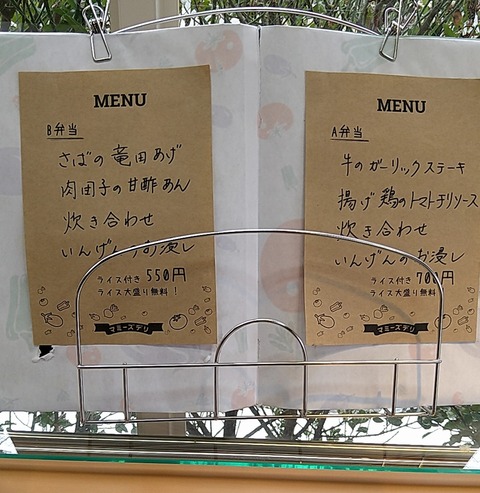 MENU
B弁当
さばの竜田あげ
肉団子の甘酢あん
炊き合わせ
いんげんのお浸し
ライス付き 550円
ライス大盛り無料！
マミーズデリ
MENU
A弁当
牛のガーリックステーキ
揚げ鶏のトマトチリソース
炊き合わせ
いんげんのお浸し
ライス付き 700円
ライス大盛り無料！
マミーズデリ